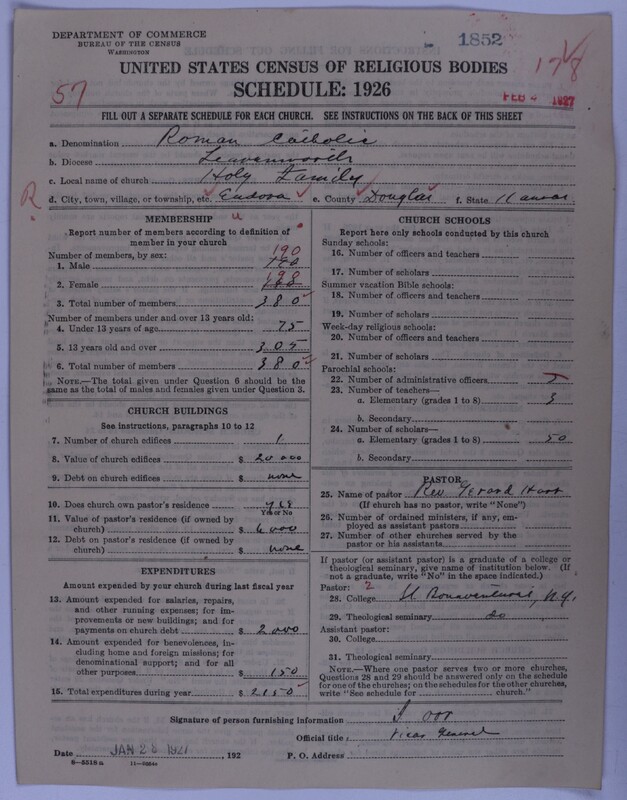 DEPARTMENT OF COMMERCE
BUREAU OF THE CENSUS
WASHINGTON
1852
178
UNITED STATES CENSUS OF RELIGIOUS BODIES
57
SCHEDULE: 1926
FEB 1927
FILL OUT A SEPARATE SCHEDULE FOR EACH CHURCH. SEE INSTRUCTIONS ON THE BACK OF THIS SHEET
a. Denomination Roman Catholic
b. Diocese Leavenworth
c. Local name of church Holy Family
R
d. City, town, village, or township, etc. Eudora e. County Douglas f. State Kansas
MEMBERSHIP
Report number of members according to definition of
member in your church
Number of members, by sex:
190
1. Male
2. Female
3. Total number of members 380
Number of members under and over 13 years old:
4. Under 13 years of age 75
5. 13 years old and over 305
6. Total number of members 380
NOTE.—The total given under Question 6 should be
same as the total of males and females given under Question 3.
CHURCH BUILDINGS
See instructions, paragraphs 10 to 12
7. Number of church edifices 1
8. Value of church edifices $ 20 000
9. Debt on church edifices $ none
10. Does church own pastor's residence yes
Yes or No
11. Value of pastor's residence (if owned by
church) $ 6000
12. Debt on pastor's residence (if owned by
church) $ none
EXPENDITURES
Amount expended by your church during last fiscal year
13. Amount expended for salaries, repairs,
and other running expenses; for im-
provements or new buildings; and for
payments on church debt $ 2000
14. Amount expended for benevolences, in-
cluding home and foreign missions; for
denominational support; and for all
other purposes $ 150
15. Total expenditures during year $ 2150
CHURCH SCHOOLS
Report here only schools conducted by this church
Sunday schools:
16. Number of officers and teachers
17. Number of scholars
Summer vacation Bible schools:
18. Number of officers and teachers
19. Number of scholars
Week-day religious schools:
20. Number of officers and teachers
21. Number of scholars
Parochial schools:
22. Number of administrative officers
23. Number of teachers—
a. Elementary (grades 1 to 8) 3
b. Secondary
24. Number of scholars—
a. Elementary (grades 1 to 8) 50
b. Secondary
PASTOR
25. Name of pastor Rev Gerard
(If church has no pastor, write "None")
26. Number of ordained ministers, if any, em-
ployed as assistant pastors
27. Number of other churches served by the
pastor or his assistants
If pastor (or assistant pastor) is a graduate of a college or
theological seminary, give name of institution below. (If
not a graduate, write "No" in the space indicated.)
Pastor: 2
28. College St. Bonaventures, N.Y.
29. Theological seminary do
Assistant pastor:
30. College
31. Theological seminary
NOTE.—Where one pastor serves two or more churches,
Questions 28 and 29 should be answered only on the schedule
for one of the churches; on the schedules for the other churches,
write "See schedule for church."
Signature of person furnishing information
Official title Vicar General
Date JAN 28 1927, 192 P. O. Address
8—5518a